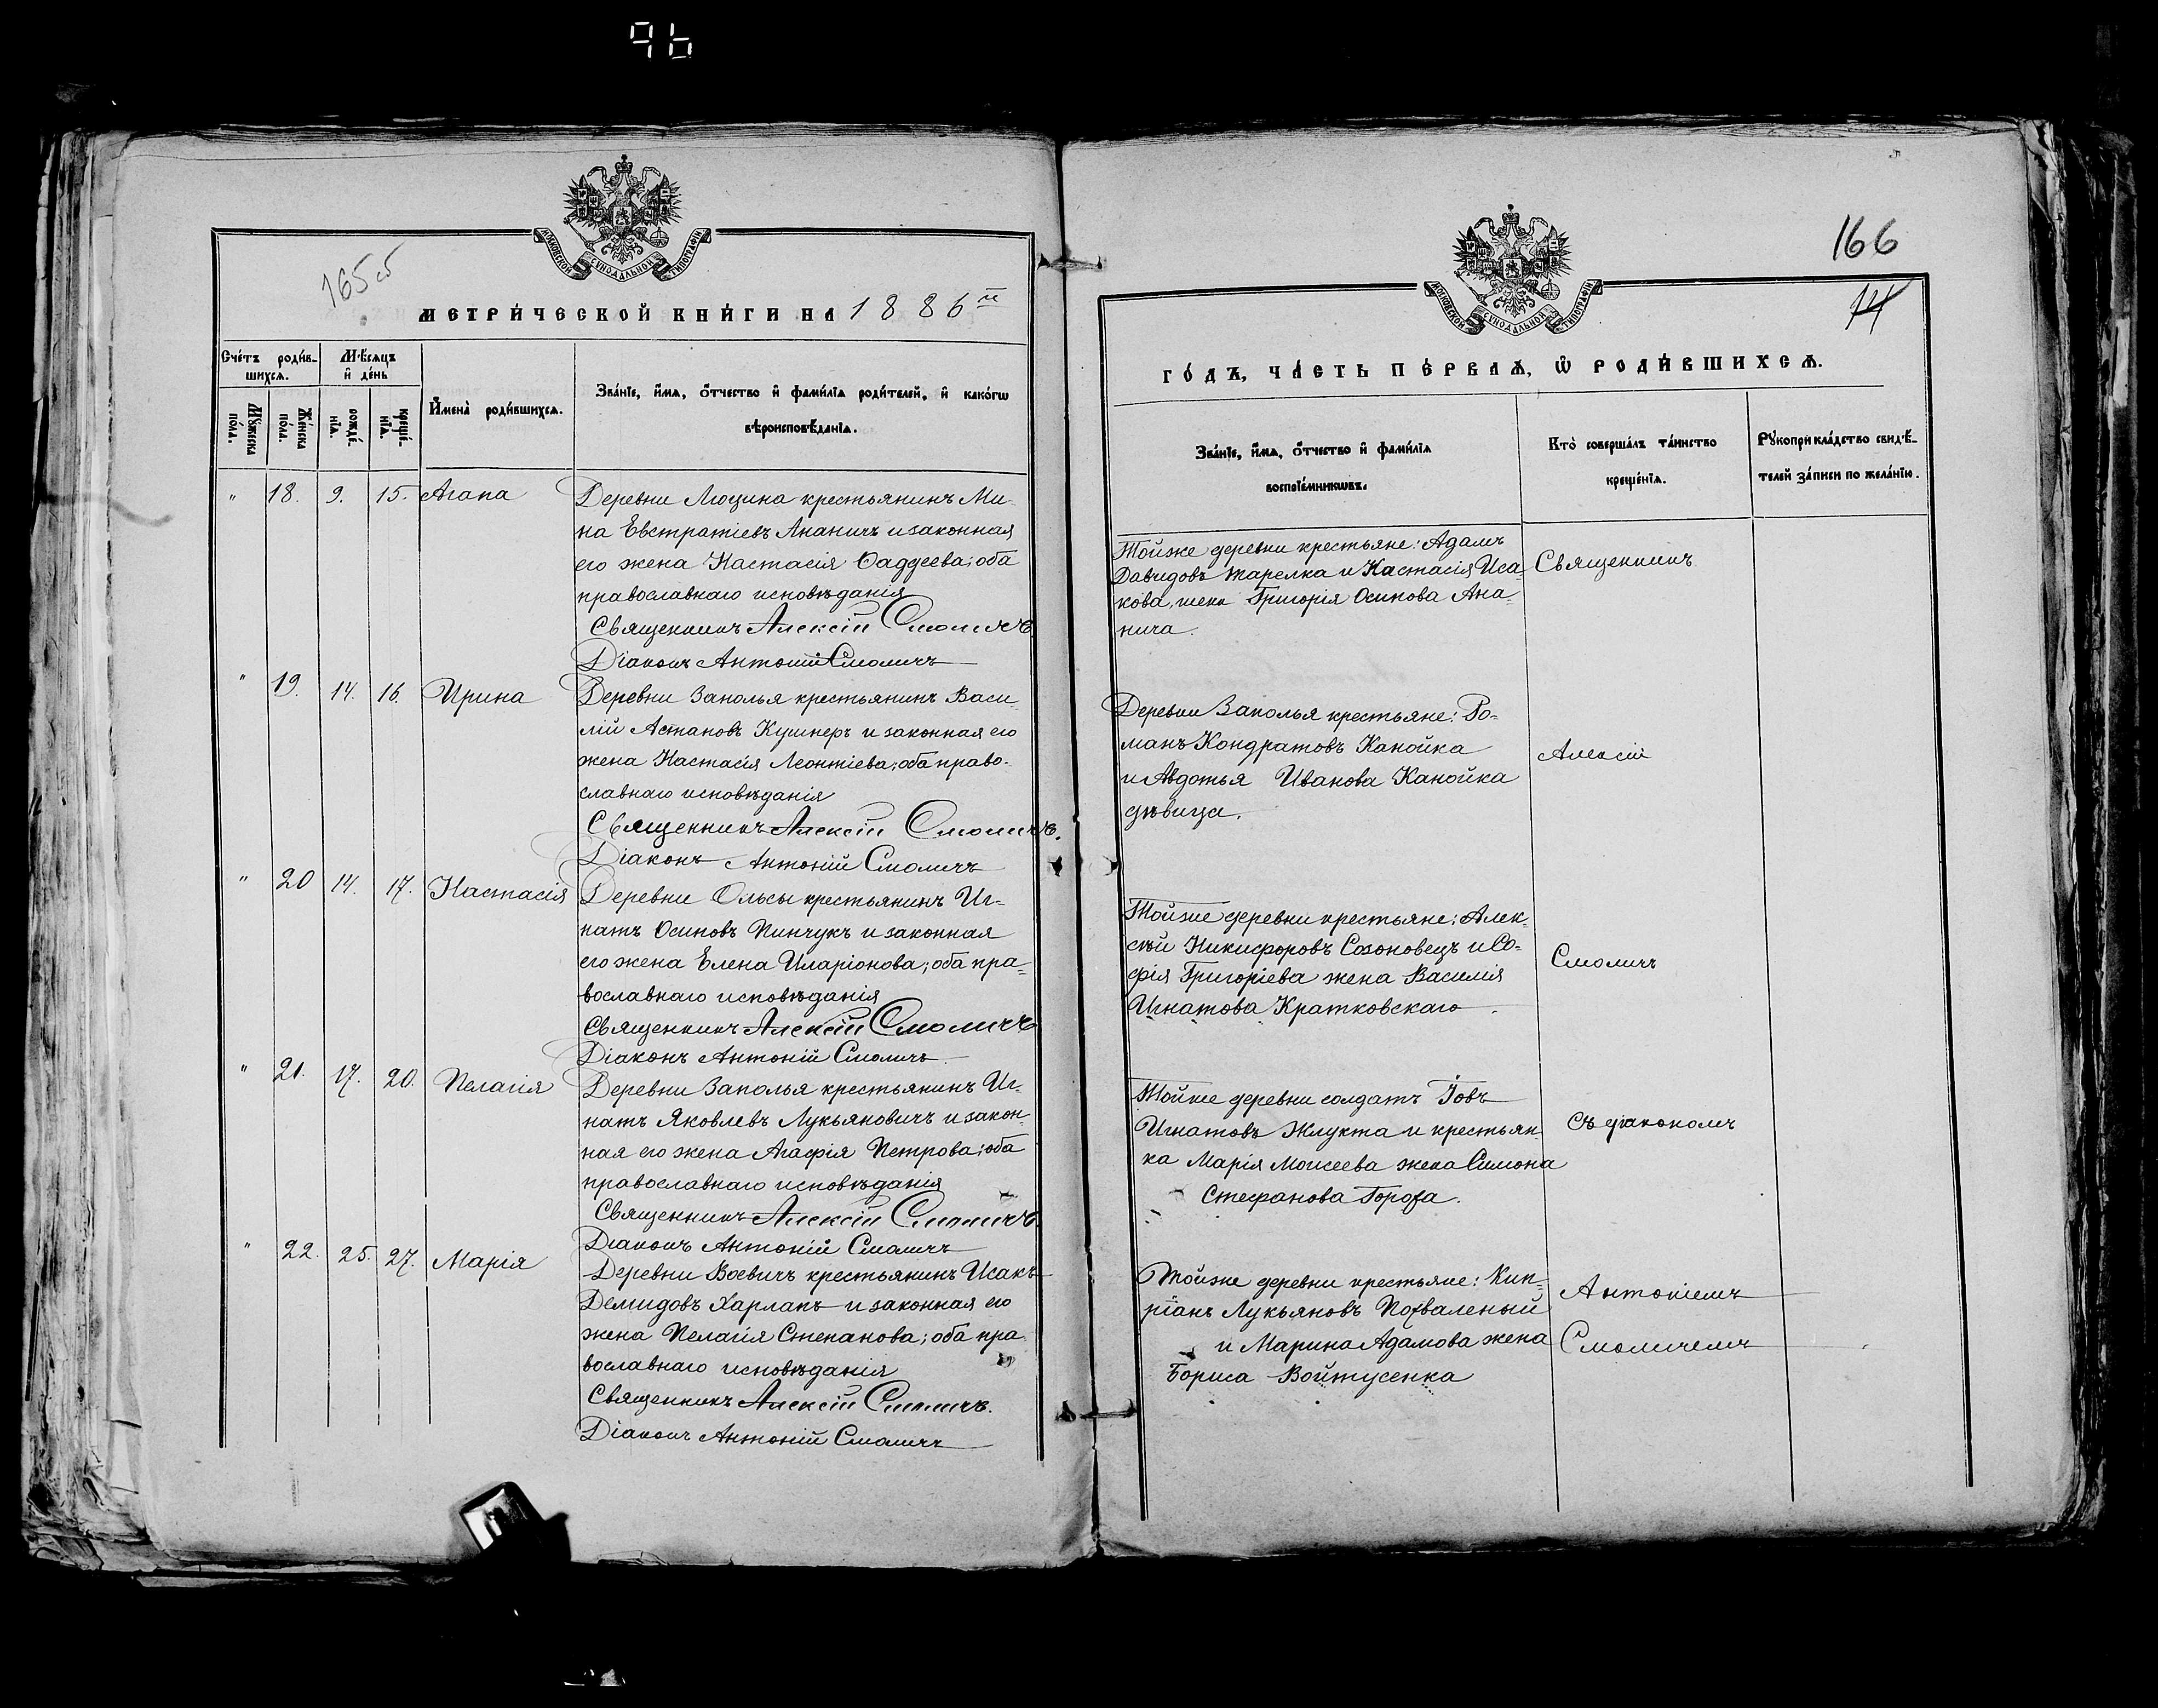 96
МОСКОВСКОЙ СѴНОДАЛЬНОЙ ТИПОГРАФІИ
165об
МЕТРИ́ЧЕСКОЙ КНИ́ГИ НА 1886й
Сче́тъ роди́в-
шихсѧ.
Мѣ́сяцъ
и҆ де́нь
И҆мена̀ роди́вшихсѧ.
Зва́нїе, и҆́мѧ, ѻ҆́тчество и҆ фами́лїѧ роди́телей, и҆ како́гѡ
вѣроисповѣ́данїѧ.
Мꙋ́жеска
по́ла.
Же́нска
по́ла.
рожде́-
нїѧ.
креще́-
нїѧ.
" 18. 9. 15. Агапа
Деревни Люцина крестьянинъ Ми-
на Евстратіевъ Ананичъ и законная
его жена Настасія Фаддеева; оба
православнаго исповѣданія
Священникъ Алексій Смоличъ
Діаконъ Антоній Смоличъ
" 19. 14. 16. Ирина
Деревни Заполья крестьянинъ Васи-
лій Астаповъ Кушнеръ и законная его
жена Настасія Леонтіева; оба право-
славнаго исповѣданія
Священникъ Алексій Смоличъ.
Діаконъ Антоній Смоличъ
" 20 14. 17. Настасія
Деревни Ольсы крестьянинъ Иг-
натъ Осиповъ Пинчукъ и законная
его жена Елена Иларіонова; оба пра-
вославнаго исповѣданія
Священникъ Алексій Смоличъ
Діаконъ Антоній Смоличъ
" 21. 17. 20. Пелагія
Деревни Заполья крестьянинъ Иг-
натъ Яковлевъ Лукьяновичъ и закон-
ная его жена Агафія Петрова; оба
православнаго исповѣданія
Священникъ Алексій Смоличъ.
Діаконъ Антоній Смоличъ
" 22. 25. 27. Марія
Деревни Воевичъ крестьянинъ Исакъ
Демидовъ Харлапъ и законная его
жена Пелагія Степанова; оба пра-
вославнаго исповѣданія
Священникъ Алексій Смоличъ.
Діаконъ Антоній Смоличъ
166
14
МОСКОВСКОЙ СѴНОДАЛЬНОЙ ТИПОГРАФІИ
ГО́ДЪ, ЧА́СТЬ ПЕ́РВАѦ, Ѡ҆ РОДИ́ВШИХСѦ.
Зва́нїе, и҆́мѧ, ѻ҆́тчество и҆ фами́лїѧ
воспрїе́мникѡвъ.
Кто̀ соверша́лъ та́инство
креще́нїѧ.
Рꙋкоприкла́дство свидѣ́-
телей за́писи по жела́нїю.
Тойже деревни крестьяне: Адамъ
Давидовъ Тарелка и Настасія Иса-
кова, жена Григорія Осипова Ана-
нича.
Деревни Заполья крестьяне: Ро-
манъ Кондратовъ Канойка
и Авдотья Иванова Канойка
дѣвица.
Тойже деревни крестьяне: Алек-
сѣй Никифоровъ Созоновецъ и Со-
фія Григоріева жена Василія
Игнатова Кратковскаго
Тойже деревни солдатъ Іовъ
Игнатовъ Жлукта и крестьян-
ка Марія Моисеева жена Симона
Стефанова Гороха.
Тойже деревни крестьяне: Кип-
ріанъ Лукьяновъ Похваленый
и Марина Адамова жена
Бориса Войтусенка
Священникъ
Алексій
Смоличъ
съ діакономъ
Антоніемъ
Смоличемъ